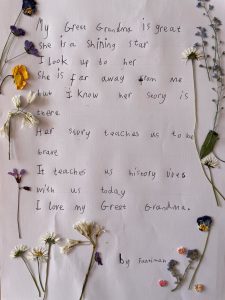 My Great Grandma is great
she is a shining star
I look up to her
she is far away from me
but I know her story is
there
Her story teaches us to be
brave
It teaches us history lives
with us today
I love my Great Grandma.
by